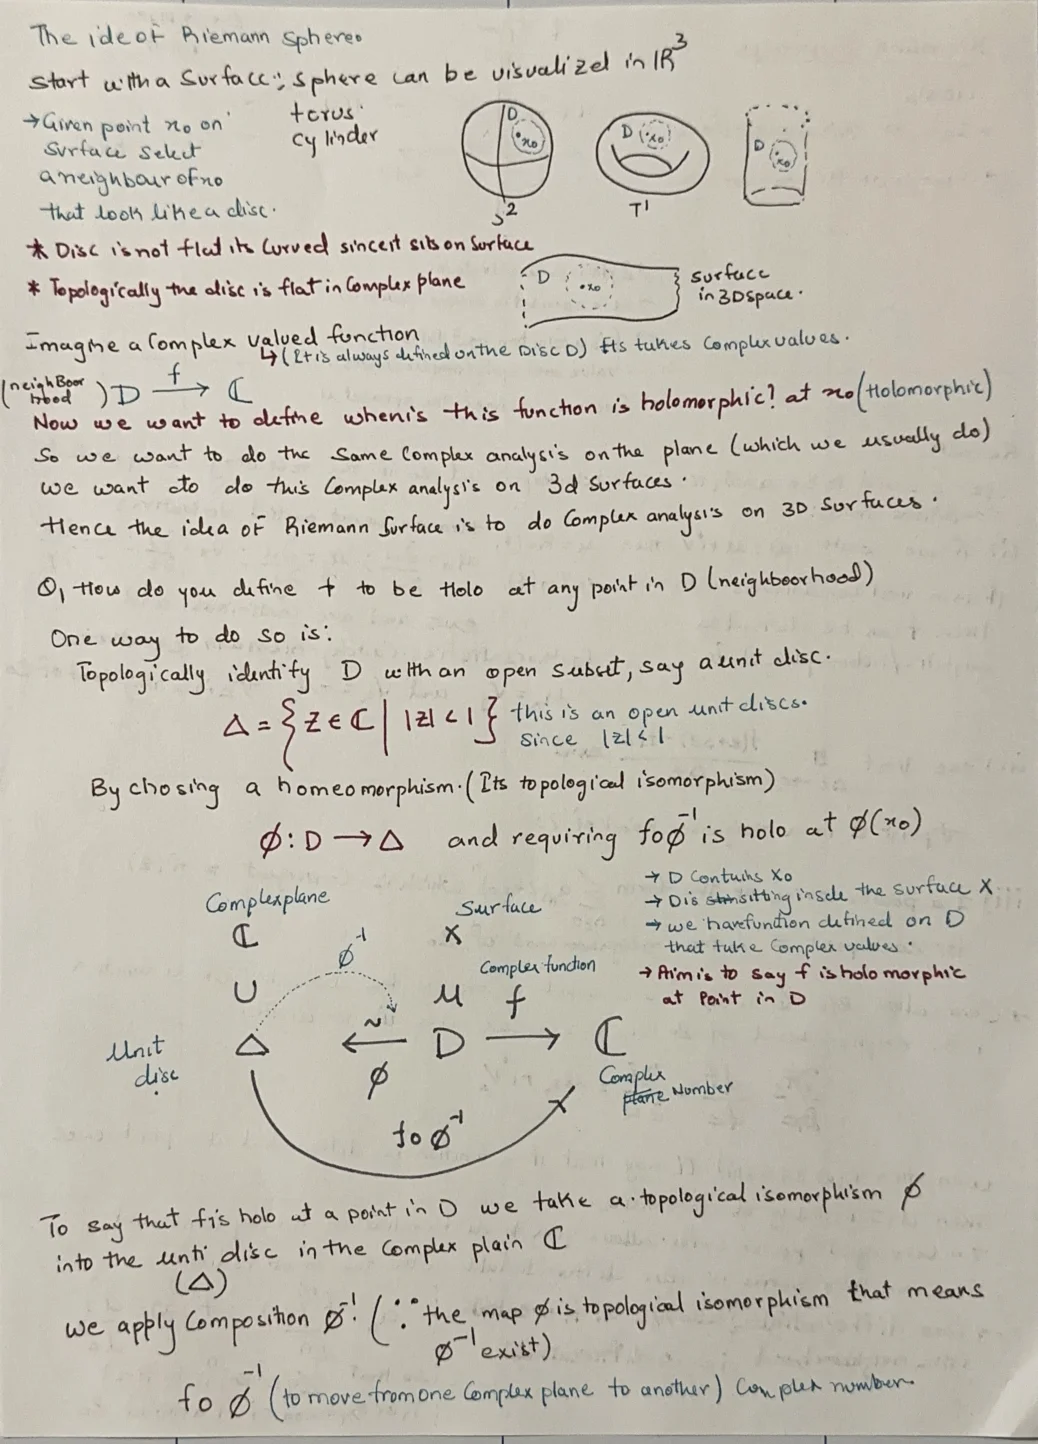 The ide of Riemann Sphere.
Start with a Surface; sphere can be visualized in ℝ³
torus
cylinder
→ Given point x₀ on
surface select
a neighbour of x₀
that look like a disc.
D
x₀
S²
D
x₀
T¹
D
x₀
* Disc is not flat its curved since it sits on surface
* Topologically the disc is flat in complex plane
D
x₀
surface
in 3D space.
Imagine a complex valued function
↳ (It is always defined on the Disc D) Its takes complex values.
(neighBoor
hood) D —f→ ℂ
Now we want to define when is this function is holomorphic? at x₀ (Holomorphic)
So we want to do the same complex analysis on the plane (which we usually do)
we want to do this complex analysis on 3d surfaces.
Hence the idea of Riemann Surface is to do complex analysis on 3D surfaces.
Q, How do you define f to be Holo at any point in D (neighboorhood)
One way to do so is:
Topologically identify D with an open subset, say a unit disc.
Δ = { Z ∈ ℂ | |z| < 1 } this is an open unit discs.
since |z| < 1
By chosing a homeomorphism. (Its topological isomorphism)
ϕ: D → Δ and requiring foϕ⁻¹ is holo at ϕ(x₀)
→ D contains X₀
→ D is sitting insde the surface X
→ we have function defined on D
that take complex values.
→ Aim is to say f is holomorphic
at point in D
Complex plane
ℂ
U
Unit
disc
Δ
ϕ⁻¹
~
←
ϕ
Surface
X
U
D
Complex function
f
→
ℂ
Complex
plane Number
fo ϕ⁻¹
To say that f is holo at a point in D we take a topological isomorphism ϕ
into the unti disc in the complex plain ℂ
(Δ)
we apply composition ϕ⁻¹. (∵ the map ϕ is topological isomorphism that means
ϕ⁻¹ exist)
fo ϕ⁻¹ (to move from one complex plane to another) complex number